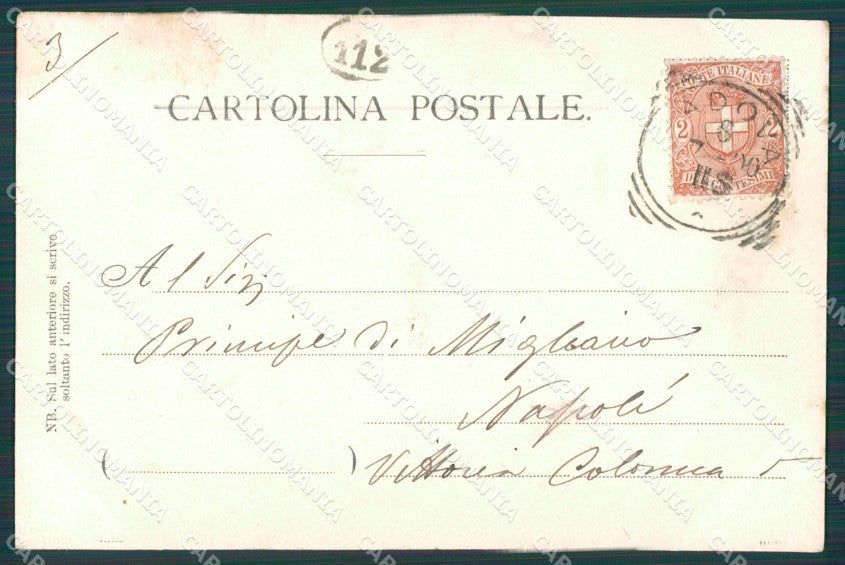 3/
112
CARTOLINA POSTALE.
POSTE ITALIANE
2 2
DUE CENTESIMI
PADOVA
Al Sig
Principe di Migliano
Napoli
Vittoria Colonna 5
NB. Sul lato anteriore si scrive
soltanto l'indirizzo.
CARTOLINOMANIA